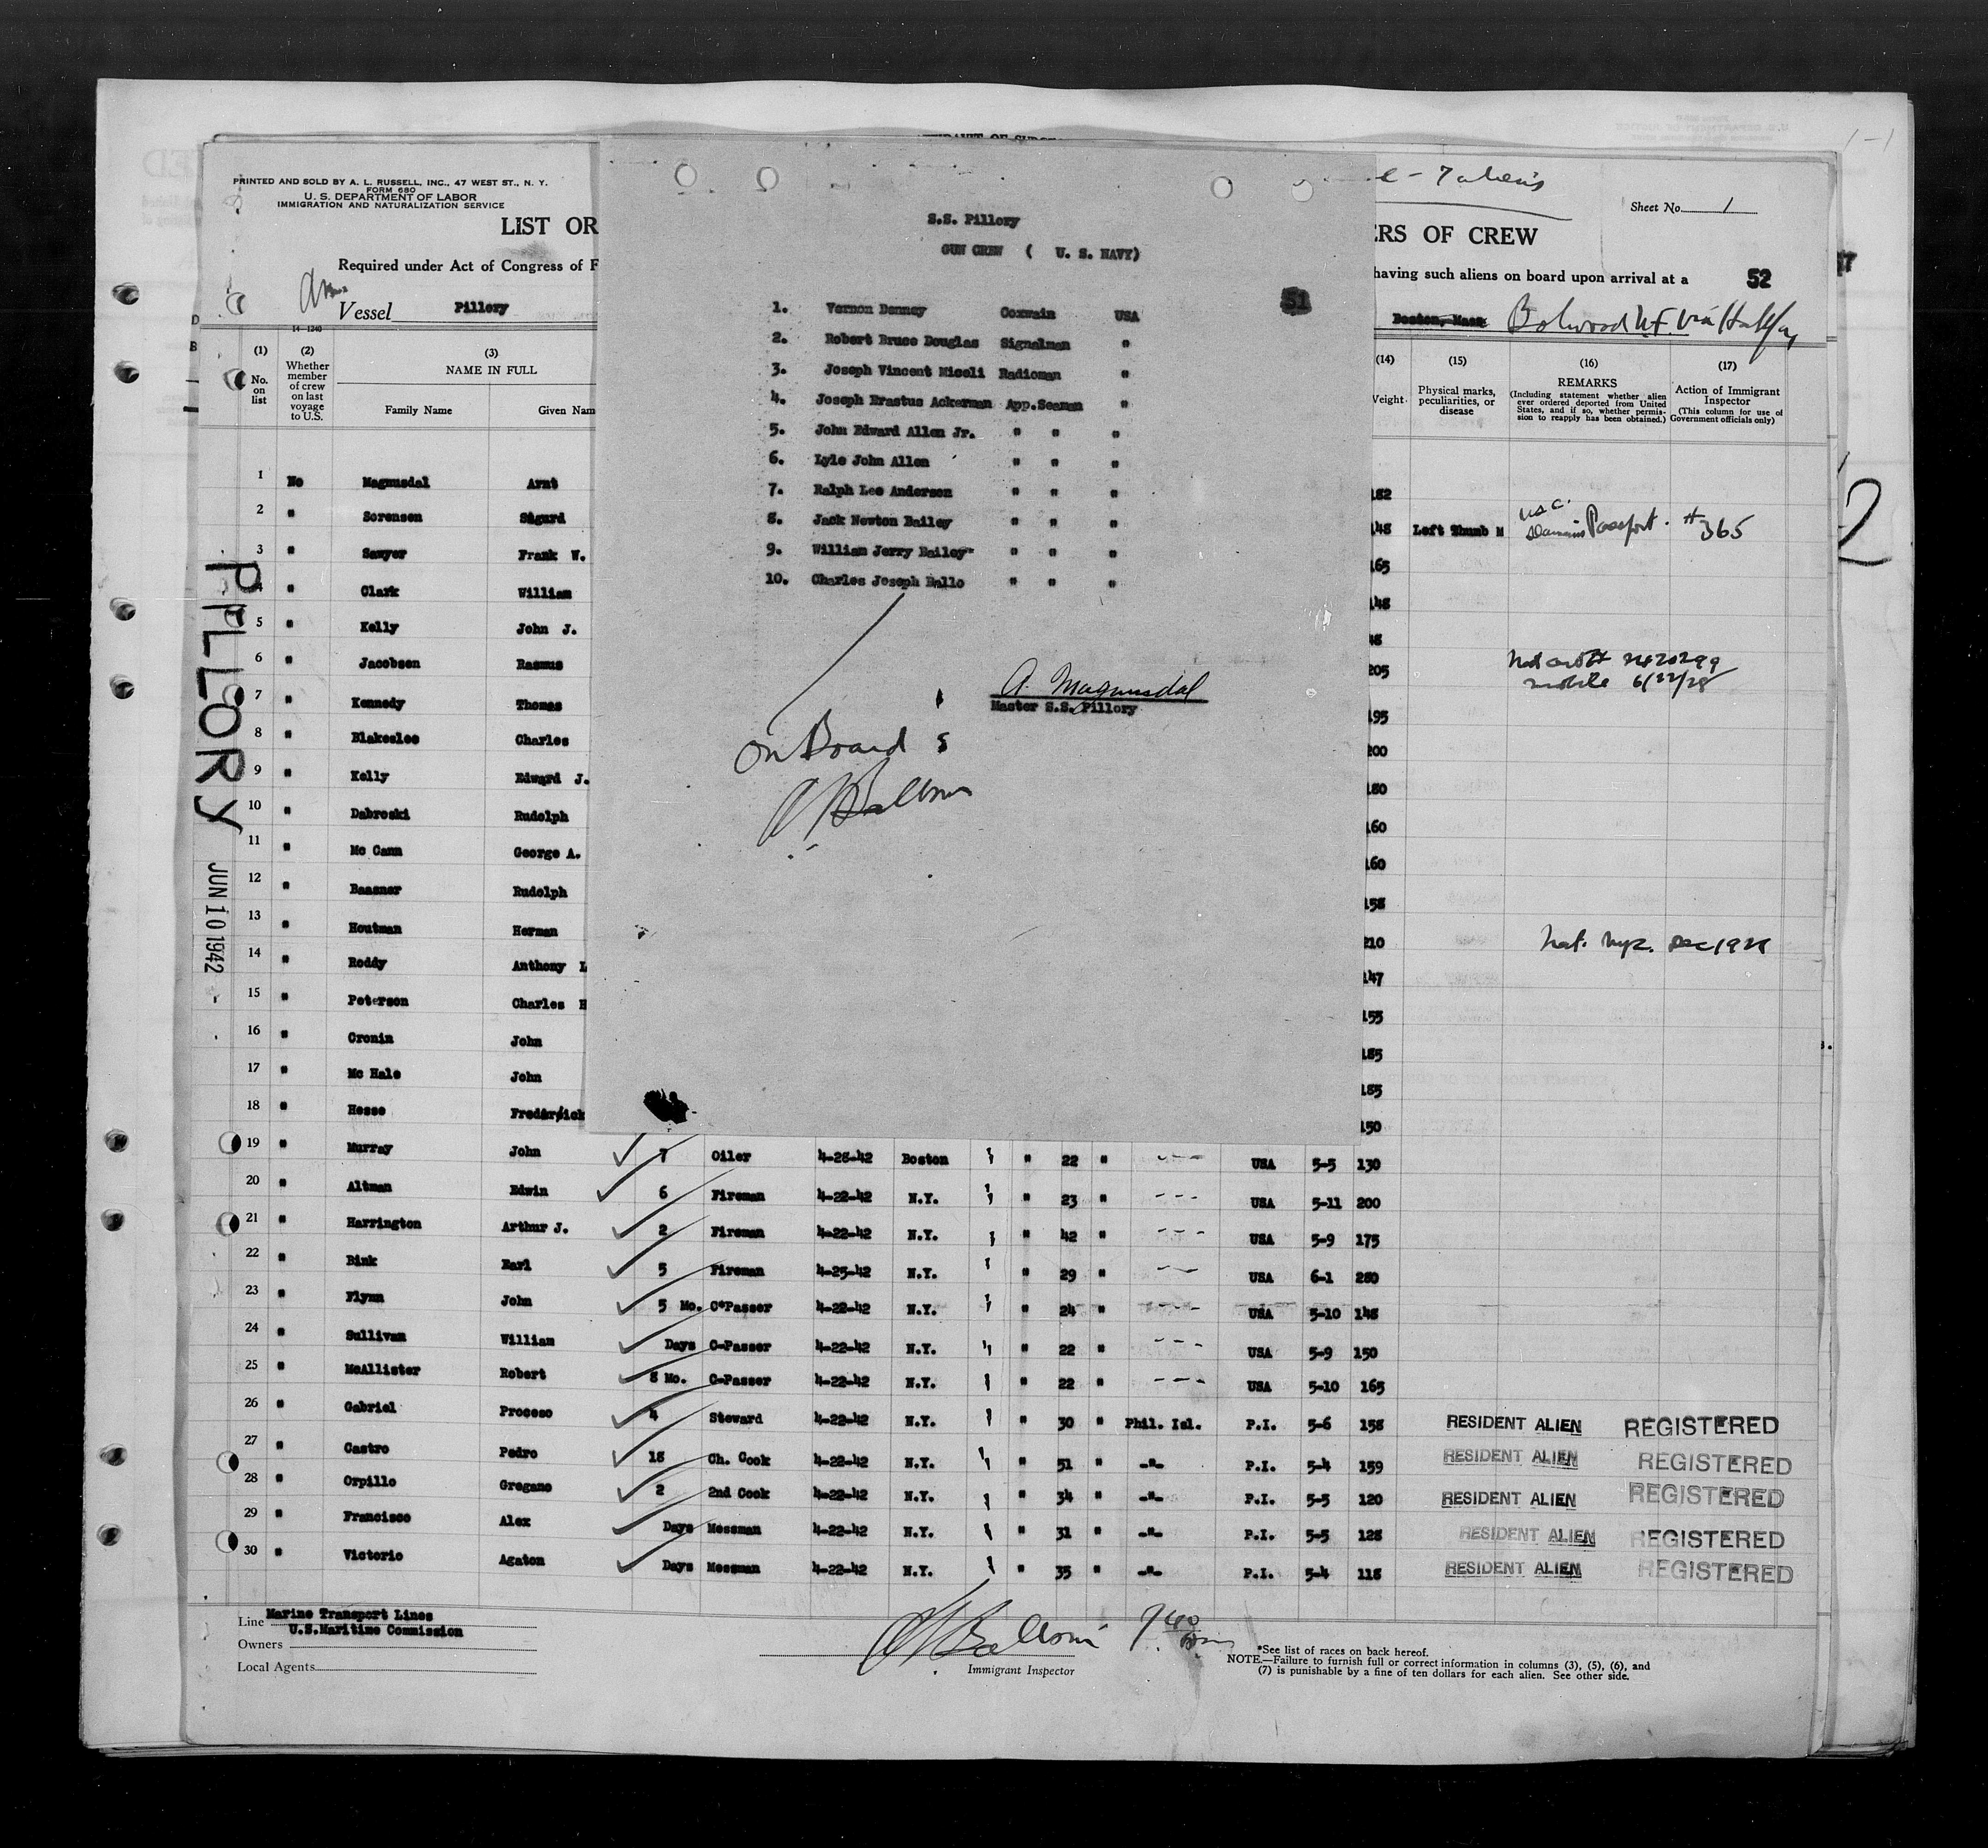 PRINTED AND SOLD BY A. L. RUSSELL, INC., 47 WEST ST., N. Y.
FORM 680
U. S. DEPARTMENT OF LABOR
IMMIGRATION AND NATURALIZATION SERVICE
LIST OR
Required under Act of Congress of F
Vessel Pillory
Sheet No. 1
ERS OF CREW
having such aliens on board upon arrival at a
52
Boston, Mass
14-1240
(1) No. on list
(2) Whether member of crew on last voyage to U.S.
(3) NAME IN FULL
Family Name Given Nam
(14) Weight
(15) Physical marks, peculiarities, or disease
(16) REMARKS (Including statement whether alien ever ordered deported from United States, and if so, whether permission to reapply has been obtained.)
(17) Action of Immigrant Inspector (This column for use of Government officials only)
S.S. Pillory
GUN CREW ( U. S. NAVY)
51
1. Vernon Denney Coxwain USA
2. Robert Bruce Douglas Signalman "
3. Joseph Vincent Miceli Radioman "
4. Joseph Erastus Ackerman App.Seaman "
5. John Edward Allen Jr. " " "
6. Lyle John Allen " " "
7. Ralph Lee Anderson " " "
8. Jack Newton Bailey " " "
9. William Jerry Bailey " " "
10. Charles Joseph Ballo " " "
A. Magnusdal
Master S.S. Pillory
on Board
PILLORY
JUN 10 1942
1 No Magnusdal Arnt 182
2 " Sorensen Sigurd 148 Left Thumb M Passport # 365
3 " Sawyer Frank W. 165
4 " Clark William 148
5 " Kelly John J.
6 " Jacobsen Rasmus 205
mobile 6/22/28
7 " Kennedy Thomas 195
8 " Blakeslee Charles 200
9 " Kelly Edward J. 180
10 " Dabroski Rudolph 160
11 " Mc Cann George A. 160
12 " Baasner Rudolph 158
13 " Houtman Herman 210
14 " Roddy Anthony L 147
15 " Peterson Charles H 155
16 " Cronin John 185
17 " Mc Hale John 185
18 " Hesse Frederick 150
19 " Murray John 7 Oiler 4-28-42 Boston " 22 " --- USA 5-5 130
20 " Altman Edwin 6 Fireman 4-22-42 N.Y. " 23 " --- USA 5-11 200
21 " Harrington Arthur J. 2 Fireman 4-22-42 N.Y. " 42 " --- USA 5-9 175
22 " Bink Earl 5 Fireman 4-25-42 N.Y. " 29 " --- USA 6-1 280
23 " Flynn John 5 Mo. C*Passer 4-22-42 N.Y. " 24 " --- USA 5-10 148
24 " Sullivan William Days C-Passer 4-22-42 N.Y. " 22 " --- USA 5-9 150
25 " McAllister Robert 8 Mo. C-Passer 4-22-42 N.Y. " 22 " --- USA 5-10 165
26 " Gabriel Proceso 4 Steward 4-22-42 N.Y. " 30 " Phil. Isl. P.I. 5-6 158 RESIDENT ALIEN REGISTERED
27 " Castro Pedro 18 Ch. Cook 4-22-42 N.Y. " 51 " -"- P.I. 5-4 159 RESIDENT ALIEN REGISTERED
28 " Orpillo Gregano 2 2nd Cook 4-22-42 N.Y. " 34 " -"- P.I. 5-5 120 RESIDENT ALIEN REGISTERED
29 " Francisco Alex Days Messman 4-22-42 N.Y. " 31 " -"- P.I. 5-5 128 RESIDENT ALIEN REGISTERED
30 " Victorio Agaton Days Messman 4-22-42 N.Y. " 35 " -"- P.I. 5-4 118 RESIDENT ALIEN REGISTERED
Line Marine Transport Lines
U.S.Maritime Commission
Owners
Local Agents
Immigrant Inspector
*See list of races on back hereof.
NOTE.—Failure to furnish full or correct information in columns (3), (5), (6), and
(7) is punishable by a fine of ten dollars for each alien. See other side.